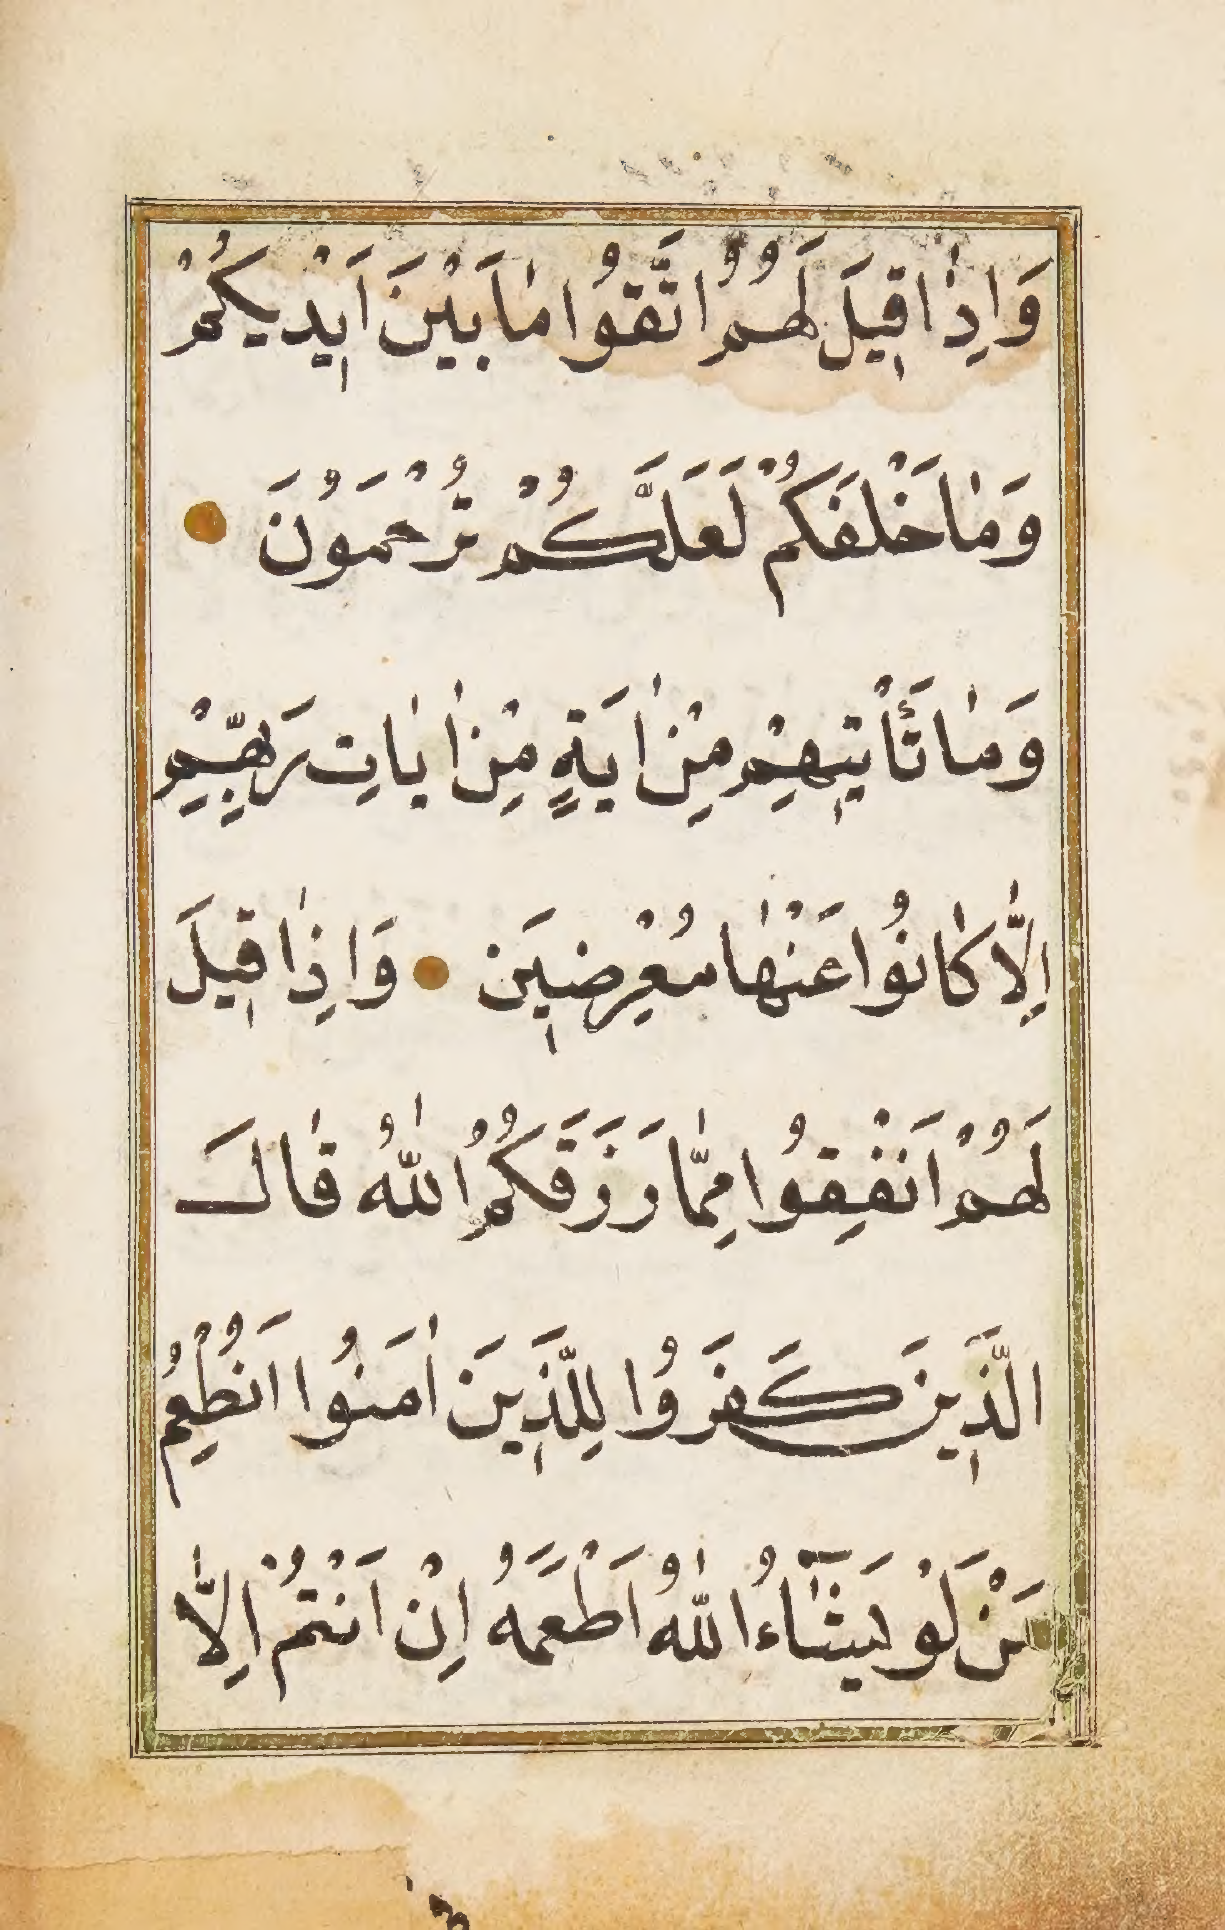 وَاِذَا قِيلَ لَهُمُ اتَّقُوا مَا بَيْنَ اَيْدِيكُمْ
وَمَا خَلْفَكُمْ لَعَلَّكُمْ تُرْحَمُونَ
وَمَا تَأْتِيهِمْ مِنْ اٰيَةٍ مِنْ اٰيَاتِ رَبِّهِمْ
اِلَّا كَانُوا عَنْهَا مُعْرِضِينَ وَاِذَا قِيلَ
لَهُمْ اَنْفِقُوا مِمَّا رَزَقَكُمُ اللّٰهُ قَالَ
الَّذِينَ كَفَرُوا لِلَّذِينَ اٰمَنُوا اَنُطْعِمُ
مَنْ لَوْ يَشَٓاءُ اللّٰهُ اَطْعَمَهُ اِنْ اَنْتُمْ اِلَّا